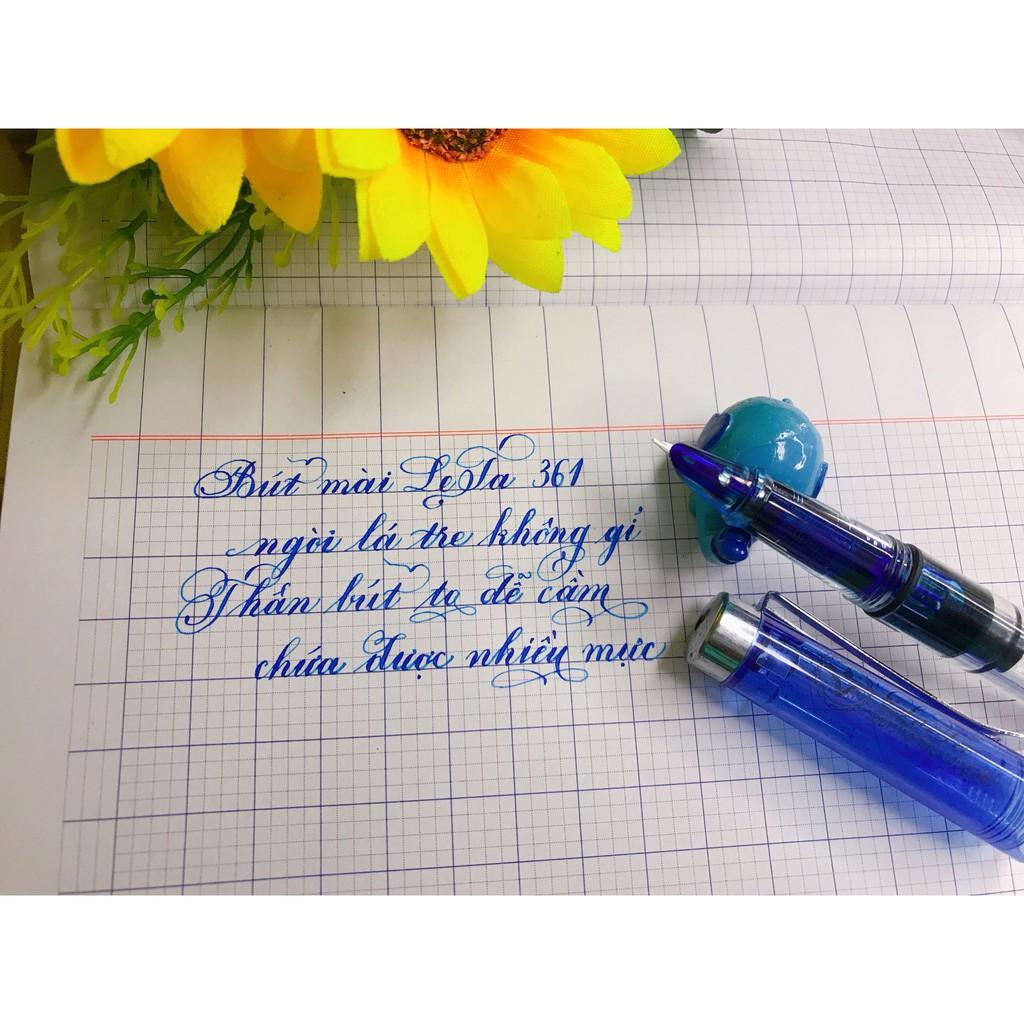 Bút mài Lẹ Ta 361
ngòi lá tre không gỉ
Thân bút to dễ cầm
chứa được nhiều mực